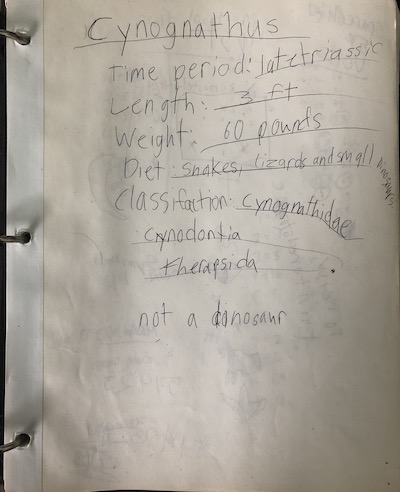 Cynognathus
Time period: late triassic
Length: 3 ft
Weight: 60 pounds
Diet: snakes, lizards and small dinosaurs
Classifaction: Cynognathidae
Cynodontia
therapsida
not a dinosaur